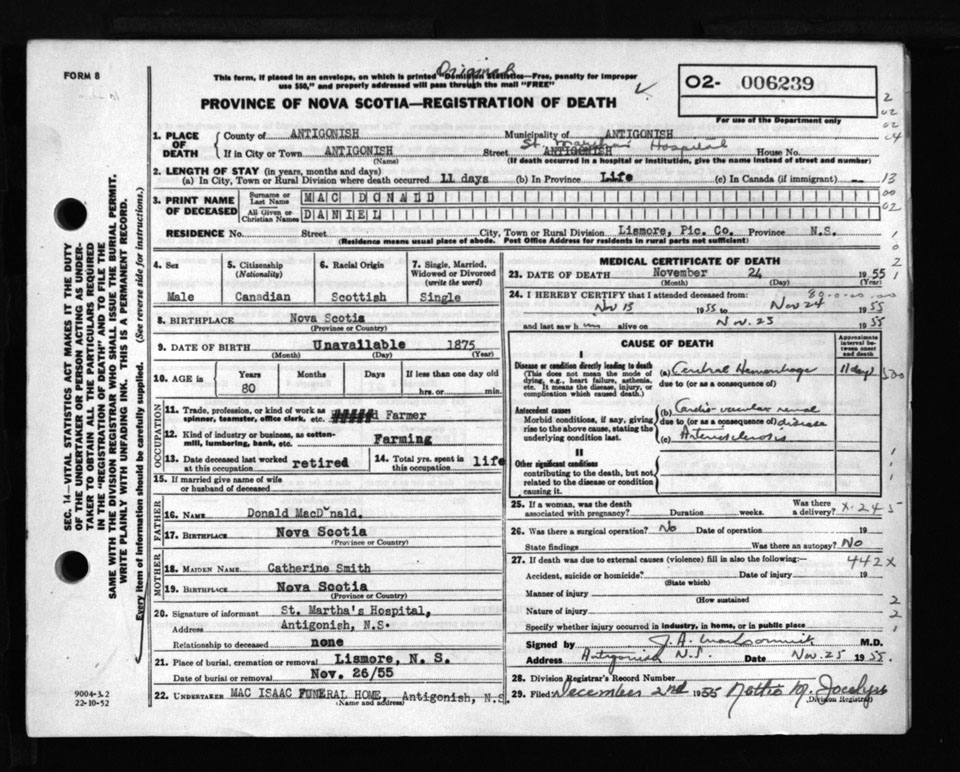 FORM 8
Original
This form, if placed in an envelope, on which is printed "Dominion Statistics—Free, penalty for improper
use $50," and properly addressed will pass through the mail "FREE"
PROVINCE OF NOVA SCOTIA—REGISTRATION OF DEATH
O2- 006239
For use of the Department only
1. PLACE OF DEATH
County of ANTIGONISH Municipality of ANTIGONISH
St. Martha's Hospital
If in City or Town ANTIGONISH Street ANTIGONISH House No.
(Name) (If death occurred in a hospital or institution, give the name instead of street and number)
2. LENGTH OF STAY (in years, months and days)
(a) In City, Town or Rural Division where death occurred 11 days (b) In Province Life (c) In Canada (if immigrant) --
3. PRINT NAME OF DECEASED
Surname or Last Name MAC DONALD
All Given or Christian Names DANIEL
RESIDENCE No. Street City, Town or Rural Division Lismore, Pic. Co. Province N.S.
(Residence means usual place of abode. Post Office Address for residents in rural parts not sufficient)
4. Sex Male
5. Citizenship (Nationality) Canadian
6. Racial Origin Scottish
7. Single, Married, Widowed or Divorced (write the word) Single
8. BIRTHPLACE Nova Scotia
(Province or Country)
9. DATE OF BIRTH Unavailable 1875
(Month) (Day) (Year)
10. AGE in Years 80 Months Days If less than one day old
hrs. or min.
OCCUPATION
11. Trade, profession, or kind of work as spinner, teamster, office clerk, etc. Farmer
12. Kind of industry or business, as cotton-mill, lumbering, bank, etc. Farming
13. Date deceased last worked at this occupation retired
14. Total yrs. spent in this occupation life
15. If married give name of wife or husband of deceased
FATHER
16. NAME Donald MacDonald.
17. BIRTHPLACE Nova Scotia
(Province or Country)
MOTHER
18. MAIDEN NAME Catherine Smith
19. BIRTHPLACE Nova Scotia
(Province or Country)
20. Signature of informant St. Martha's Hospital,
Address Antigonish, N.S.
Relationship to deceased none
21. Place of burial, cremation or removal Lismore, N. S.
Date of burial or removal Nov. 26/55
22. UNDERTAKER MAC ISAAC FUNERAL HOME, Antigonish, N.S.
(Name and address)
MEDICAL CERTIFICATE OF DEATH
23. DATE OF DEATH November 24 1955
(Month) (Day)
24. I HEREBY CERTIFY that I attended deceased from:
Nov 13 1955 to Nov 24 1955
and last saw him alive on Nov. 23 1955
CAUSE OF DEATH
Approximate interval between onset and death
I
Disease or condition directly leading to death
(This does not mean the mode of dying, e.g., heart failure, asthenia, etc. It means the disease, injury, or complication which caused death.)
(a) Cerebral Hemorrhage 11 days
due to (or as a consequence of)
Antecedent causes
Morbid conditions, if any, giving rise to the above cause, stating the underlying condition last.
(b) Cardio-vascular renal
due to (or as a consequence of) disease
(c) Arteriosclerosis
II
Other significant conditions
contributing to the death, but not related to the disease or condition causing it.
25. If a woman, was the death associated with pregnancy? Duration weeks. Was there a delivery?
26. Was there a surgical operation? No Date of operation 19
State findings Was there an autopsy? No
27. If death was due to external causes (violence) fill in also the following:— 442X
Accident, suicide or homicide? Date of injury 19
(State which)
Manner of injury
(How sustained
Nature of injury
Specify whether injury occurred in industry, in home, or in public place
Signed by J. A. MacCormick M.D.
Address Antigonish N.S. Date Nov. 25 1955.
28. Division Registrar's Record Number
29. Filed December 2nd 1955 Nettie M. Jocelyn
(Division Registrar)
SEC. 14—VITAL STATISTICS ACT MAKES IT THE DUTY
OF THE UNDERTAKER OR PERSON ACTING AS UNDER-
TAKER TO OBTAIN ALL THE PARTICULARS REQUIRED
IN THE "REGISTRATION OF DEATH" AND TO FILE THE
SAME WITH THE DIVISION REGISTRAR WHO SHALL ISSUE THE BURIAL PERMIT.
WRITE PLAINLY WITH UNFADING INK. THIS IS A PERMANENT RECORD.
Every item of information should be carefully supplied. (See reverse side for instructions.)
9004-3.2
22-10-52